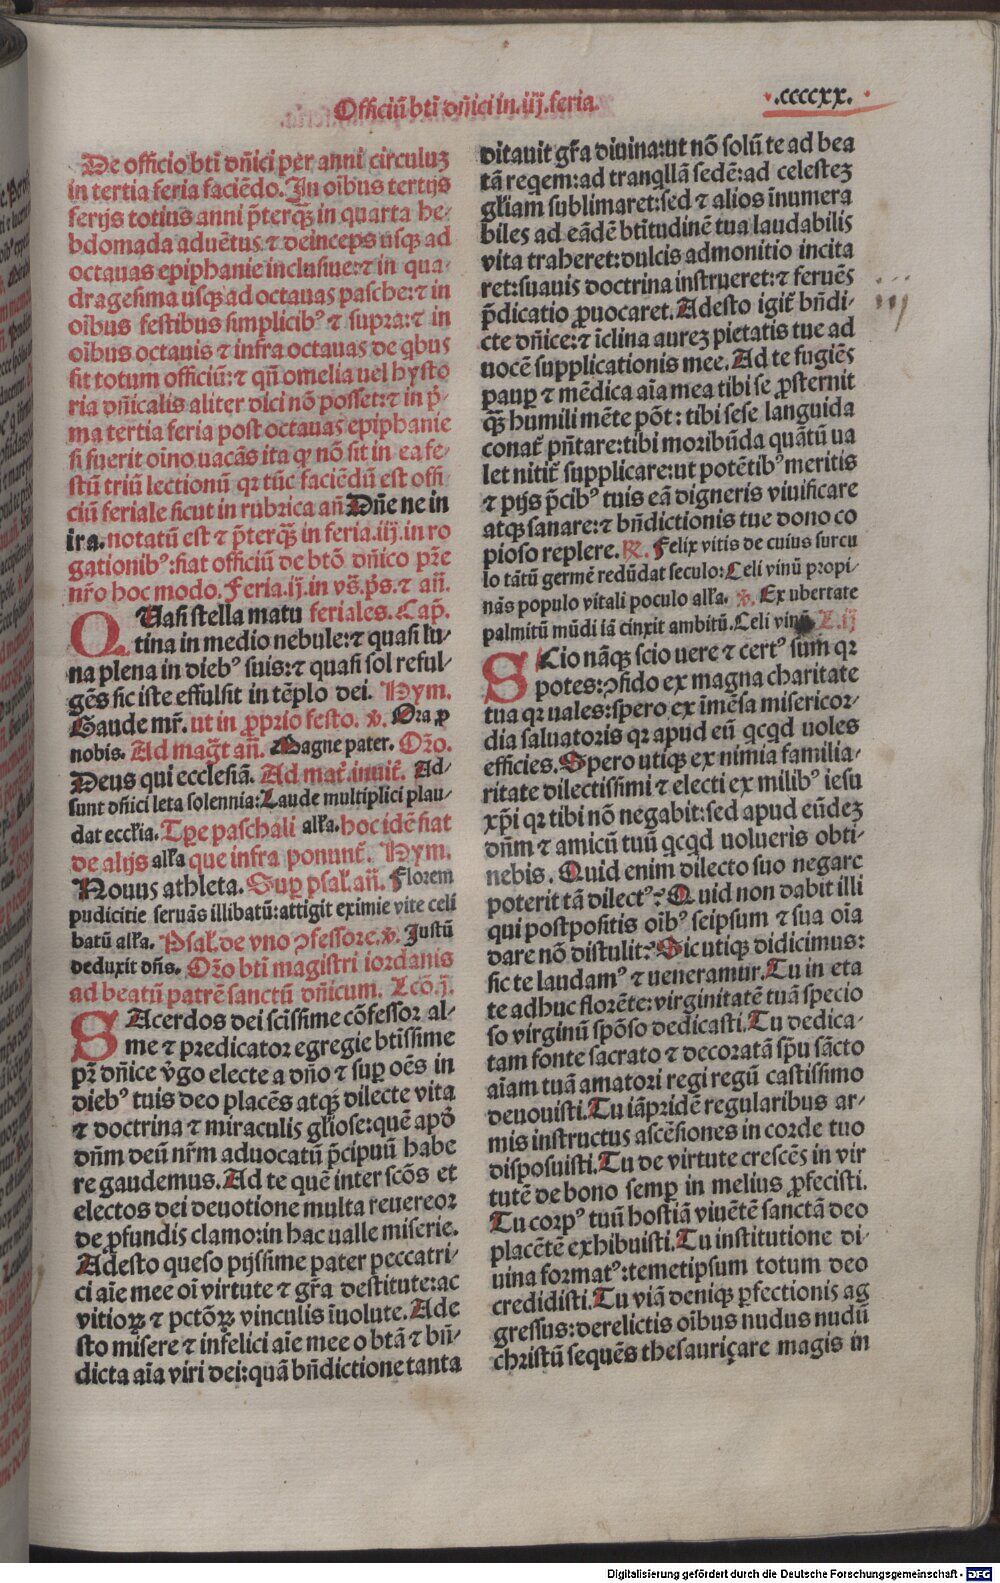 Officiũ bti̅ dñici in .iij. feria.
.ccccxx.
De officio bti̅ dñici per anni circuluꝫ
in tertia feria faciẽdo. In oi̅bus tertijs
ferijs totius anni p̃terqꝫ̃ in quarta he-
bdomada aduẽtus ⁊ deinceps usqꝫ ad
octauas epiphanie inclusiue:⁊ in qua-
dragesima usqꝫ ad octauas pasche:⁊ in
oi̅bus festibus simplicibꝰ ⁊ supra:⁊ in
oi̅bus octauis ⁊ infra octauas de qbus
fit totum officiũ:⁊ qñ omelia uel hysto
ria dñicalis aliter dici nõ posset:⁊ in p̃-
ma tertia feria post octauas epiphanie
si fuerit oi̅no uacãs ita ꝙ nõ sit in ea fe-
stũ triũ lectionũ qꝛ tũc faciẽdũ est offi
ciũ feriale sicut in rubrica añ. Dñe ne in
ira. notatũ est ⁊ p̃terqꝫ̃ in feria.iij.in ro
gationibꝰ:fiat officiũ de btõ dñico pr̃e
nr̃o hoc modo. Feria.ij.in vs̃.p̃s.⁊ añ.
QUasi stella matu feriales. Cap̃.
tina in medio nebule:⁊ quasi lu-
na plena in diebꝰ suis:⁊ quasi sol reful-
gẽs sic iste effulsit in tẽplo dei. Hym.
Gaude mr̃. ut in ꝓprio festo. ℣. Ora ꝓ
nobis. Ad mag̃t añ. Magne pater. Orõ.
Deus qui ecclesiã. Ad mat̃.inuit̃. Ad-
sunt dñici leta solennia:Laude multiplici plau-
dat eccl̃ia. Tp̃e paschali all̃a. hoc idẽ fiat
de alijs all̃a que infra ponunt̃. Hym.
Nouuꝫ athleta. Suꝑ psal̃.añ. Florem
pudicitie seruãs illibatũ:attigit eximie vite celi
batũ all̃a. Psal̃.de vno ↄfessore.℣. Justũ
deduxit dñs. Orõ bti̅ magistri iordanis
ad beatũ patrẽ sanctũ dñicum. Lcõ.j.
SAcerdos dei sci̅ssime cõfessor al-
me ⁊ predicator egregie bti̅ssime
pr̃ dñice v̾go electe a dño ⁊ suꝑ oẽs in
diebꝰ tuis deo placẽs atqꝫ dilecte vita
⁊ doctrina ⁊ miraculis gl̃iose:quẽ apđ
dñm deũ nr̃m aduocatũ p̃cipuũ habe
re gaudemus. Ad te quẽ inter scõs et
electos dei deuotione multa reuereor
de ꝓfundis clamo:in hac ualle miserie.
Adesto queso pijssime pater peccatri-
ci aie̅ mee oi̅ virtute ⁊ gr̃a destitute:ac
vitioꝝ ⁊ pctõꝝ vinculis i̅uolute. Ade
sto misere ⁊ infelici aie̅ mee o btã ⁊ bñ-
dicta aia̅ viri dei:quã bñdictione tanta
ditauit gr̃a diuina:ut nõ solũ te ad bea
tã reqem:ad tranqllã sedẽ:ad celesteꝫ
gl̃iam sublimaret:sed ⁊ alios i̅numera
biles ad eãdẽ bti̅tudinẽ tua laudabilis
vita traheret:dulcis admonitio incita
ret:suauis doctrina instrueret:⁊ feruẽs
p̃dicatio ꝓuocaret. Adesto igit̃ bñdi-
cte dñice:⁊ i̅clina aureꝫ pietatis tue ad
uocẽ supplicationis mee. Ad te fugiẽs
pauꝑ ⁊ mẽdica aia̅ mea tibi se ꝓsternit
qꝫ̃ humili mẽte põt: tibi sese languida
conat̃ pñtare:tibi moribũda quãtũ ua
let nitit̃ supplicare:ut potẽtibꝰ meritis
⁊ pijs p̃cibꝰ tuis eã digneris viuificare
atqꝫ sanare:⁊ bñdictionis tue dono co
pioso replere. ℟. Felix vitis de cuius surcu
lo tãtũ germẽ redũdat seculo:Celi vinũ propi-
nãs populo vitali poculo all̃a. ℣. Ex ubertate
palmitũ mũdi iã cinxit ambitũ. Celi vinũ L.ij
SCio nãqꝫ scio uere ⁊ certꝰ sum qꝛ
potes:ↄfido ex magna charitate
tua qꝛ uales:spero ex i̅mẽsa misericor-
dia saluatoris qꝛ apud eũ qcqd uoles
efficies. Spero utiqꝫ ex nimia familia-
ritate dilectissimi ⁊ electi ex milibꝰ iesu
xp̃i qꝛ tibi nõ negabit:sed apud eũdeꝫ
dñm ⁊ amicũ tuũ qcqd uolueris obti-
nebis. Quid enim dilecto suo negare
poterit tã dilectꝰ? Quid non dabit illi
qui postpositis oi̅bꝰ seipsum ⁊ sua oia̅
dare nõ distulit? Sic utiqꝫ didicimus:
sic te laudamꝰ ⁊ ueneramur. Tu in eta
te adhuc florẽte:virginitatẽ tuã specio
so virginũ spõso dedicasti. Tu dedica-
tam fonte sacrato ⁊ decoratã sp̃u sãcto
aia̅m tuã amatori regi regũ castissimo
deuouisti. Tu iãpridẽ regularibus ar-
mis instructus ascẽsiones in corde tuo
disposuisti. Tu de virtute crescẽs in vir
tutẽ de bono semꝑ in melius ꝓfecisti.
Tu corpꝰ tuũ hostiã viuẽtẽ sanctã deo
placẽtẽ exhibuisti. Tu institutione di-
uina formatꝰ:temetipsum totum deo
credidisti. Tu viã deniqꝫ ꝑfectionis ag
gressus:derelictis oi̅bus nudus nudũ
christũ sequẽs thesauriçare magis in
Digitalisierung gefördert durch die Deutsche Forschungsgemeinschaft - DFG